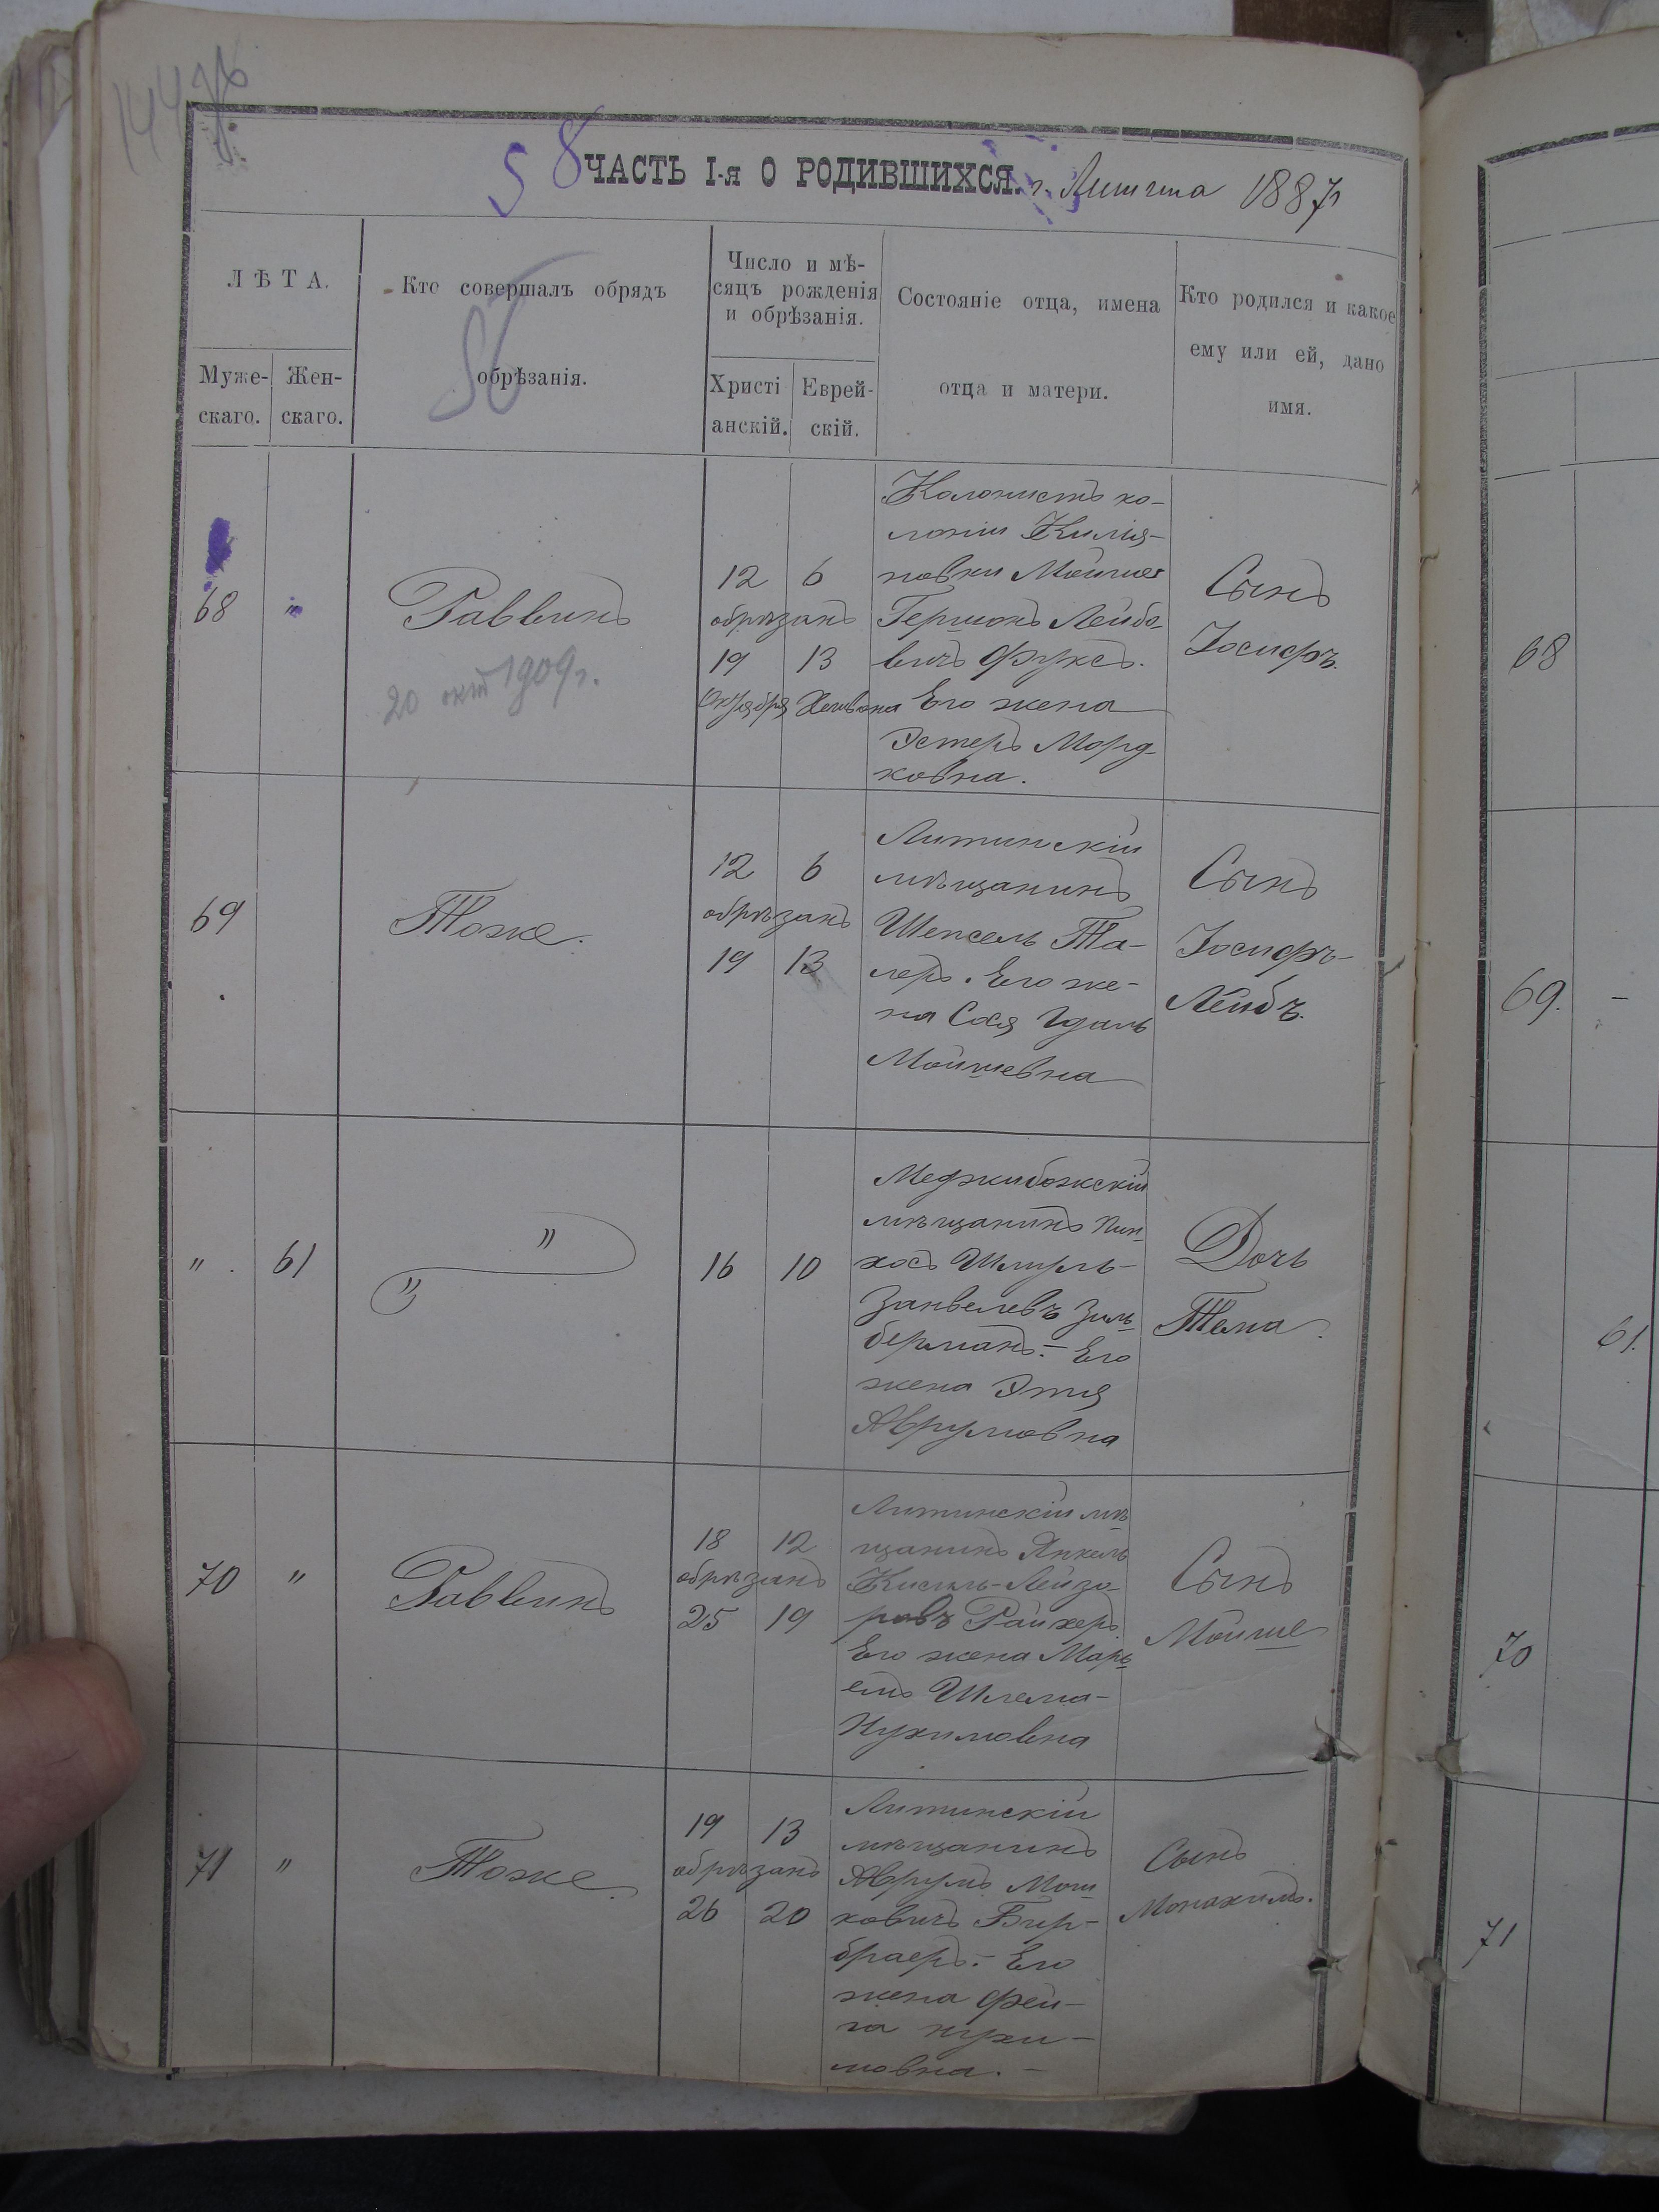 58
ЧАСТЬ I-я О РОДИВШИХСЯ. г. Литина 1887 г
ЛѢТА.
Муже-
скаго.
Жен-
скаго.
Кто совершалъ обрядъ
обрѣзанія.
Число и мѣ-
сяцъ рожденія
и обрѣзанія.
Христі
анскій.
Еврей-
скій.
Состояніе отца, имена
отца и матери.
Кто родился и какое
ему или ей, дано
имя.
68 "
Раввинъ
20 окт 1909 г.
12 6
обрѣзанъ
19 13
Октября Хешвона
Колонистъ ко-
лоніи Килія-
новки Мойше
Гершонъ Лейбо-
вичъ Фуксъ.
Его жена
Эстеръ Морд-
ковна.
Сынъ
Іосифъ.
68
69
Тоже.
12 6
обрѣзанъ
19 13
Литинскій
мѣщанинъ
Шепсель Та-
леръ. Его же-
на Сося Идаль
Мойшевна
Сынъ
Іосифъ-
Лейбъ.
69. -
" . 61
" "
16 10
Меджибожскій
мѣщанинъ Пин-
хосъ Шмуль-
Занвелевъ Зиль-
берманъ. - Его
жена Этя
Аврумовна
Дочь
Тема.
61.
70 "
Раввинъ
18 12
обрѣзанъ
25 19
Литинскій мѣ-
щанинъ Янкель
Кисиль-Лейзо-
ровъ Райхеръ
Его жена Марь-
емъ Шлема-
Нухимовна
Сынъ
Мойше
70
71 "
Тоже.
19 13
обрѣзанъ
26 20
Литинскій
мѣщанинъ
Аврумъ Мош-
ковичъ Бир-
браеръ. - Его
жена Фей-
га Нухи-
мовна. -
Сынъ
Монахимъ.
71